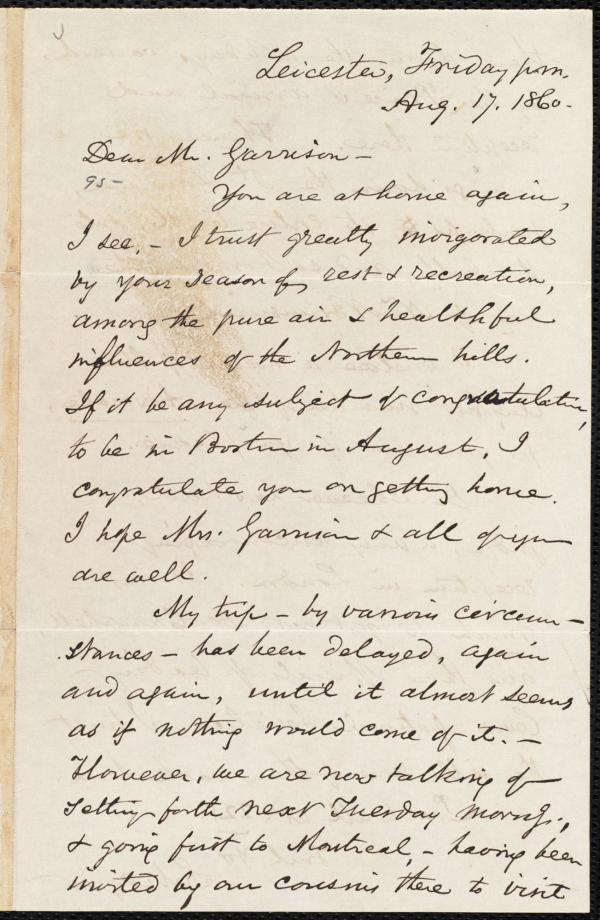 Leicester, Friday p.m.
Aug. 17. 1860.
Dear Mr. Garrison –
95–
You are at home again,
I see, – I trust greatly invigorated
by your season of rest & recreation,
among the pure air & healthful
influences of the Northern hills.
If it be any subject of congratulation,
to be in Boston in August, I
congratulate you on getting home.
I hope Mrs. Garrison & all of you
are well.
My trip – by various circum-
stances – has been delayed, again
and again, until it almost seems
as if nothing would come of it. –
However, we are now talking of
setting forth next Tuesday morng.,
& going first to Montreal, – having been
invited by our cousins there to visit